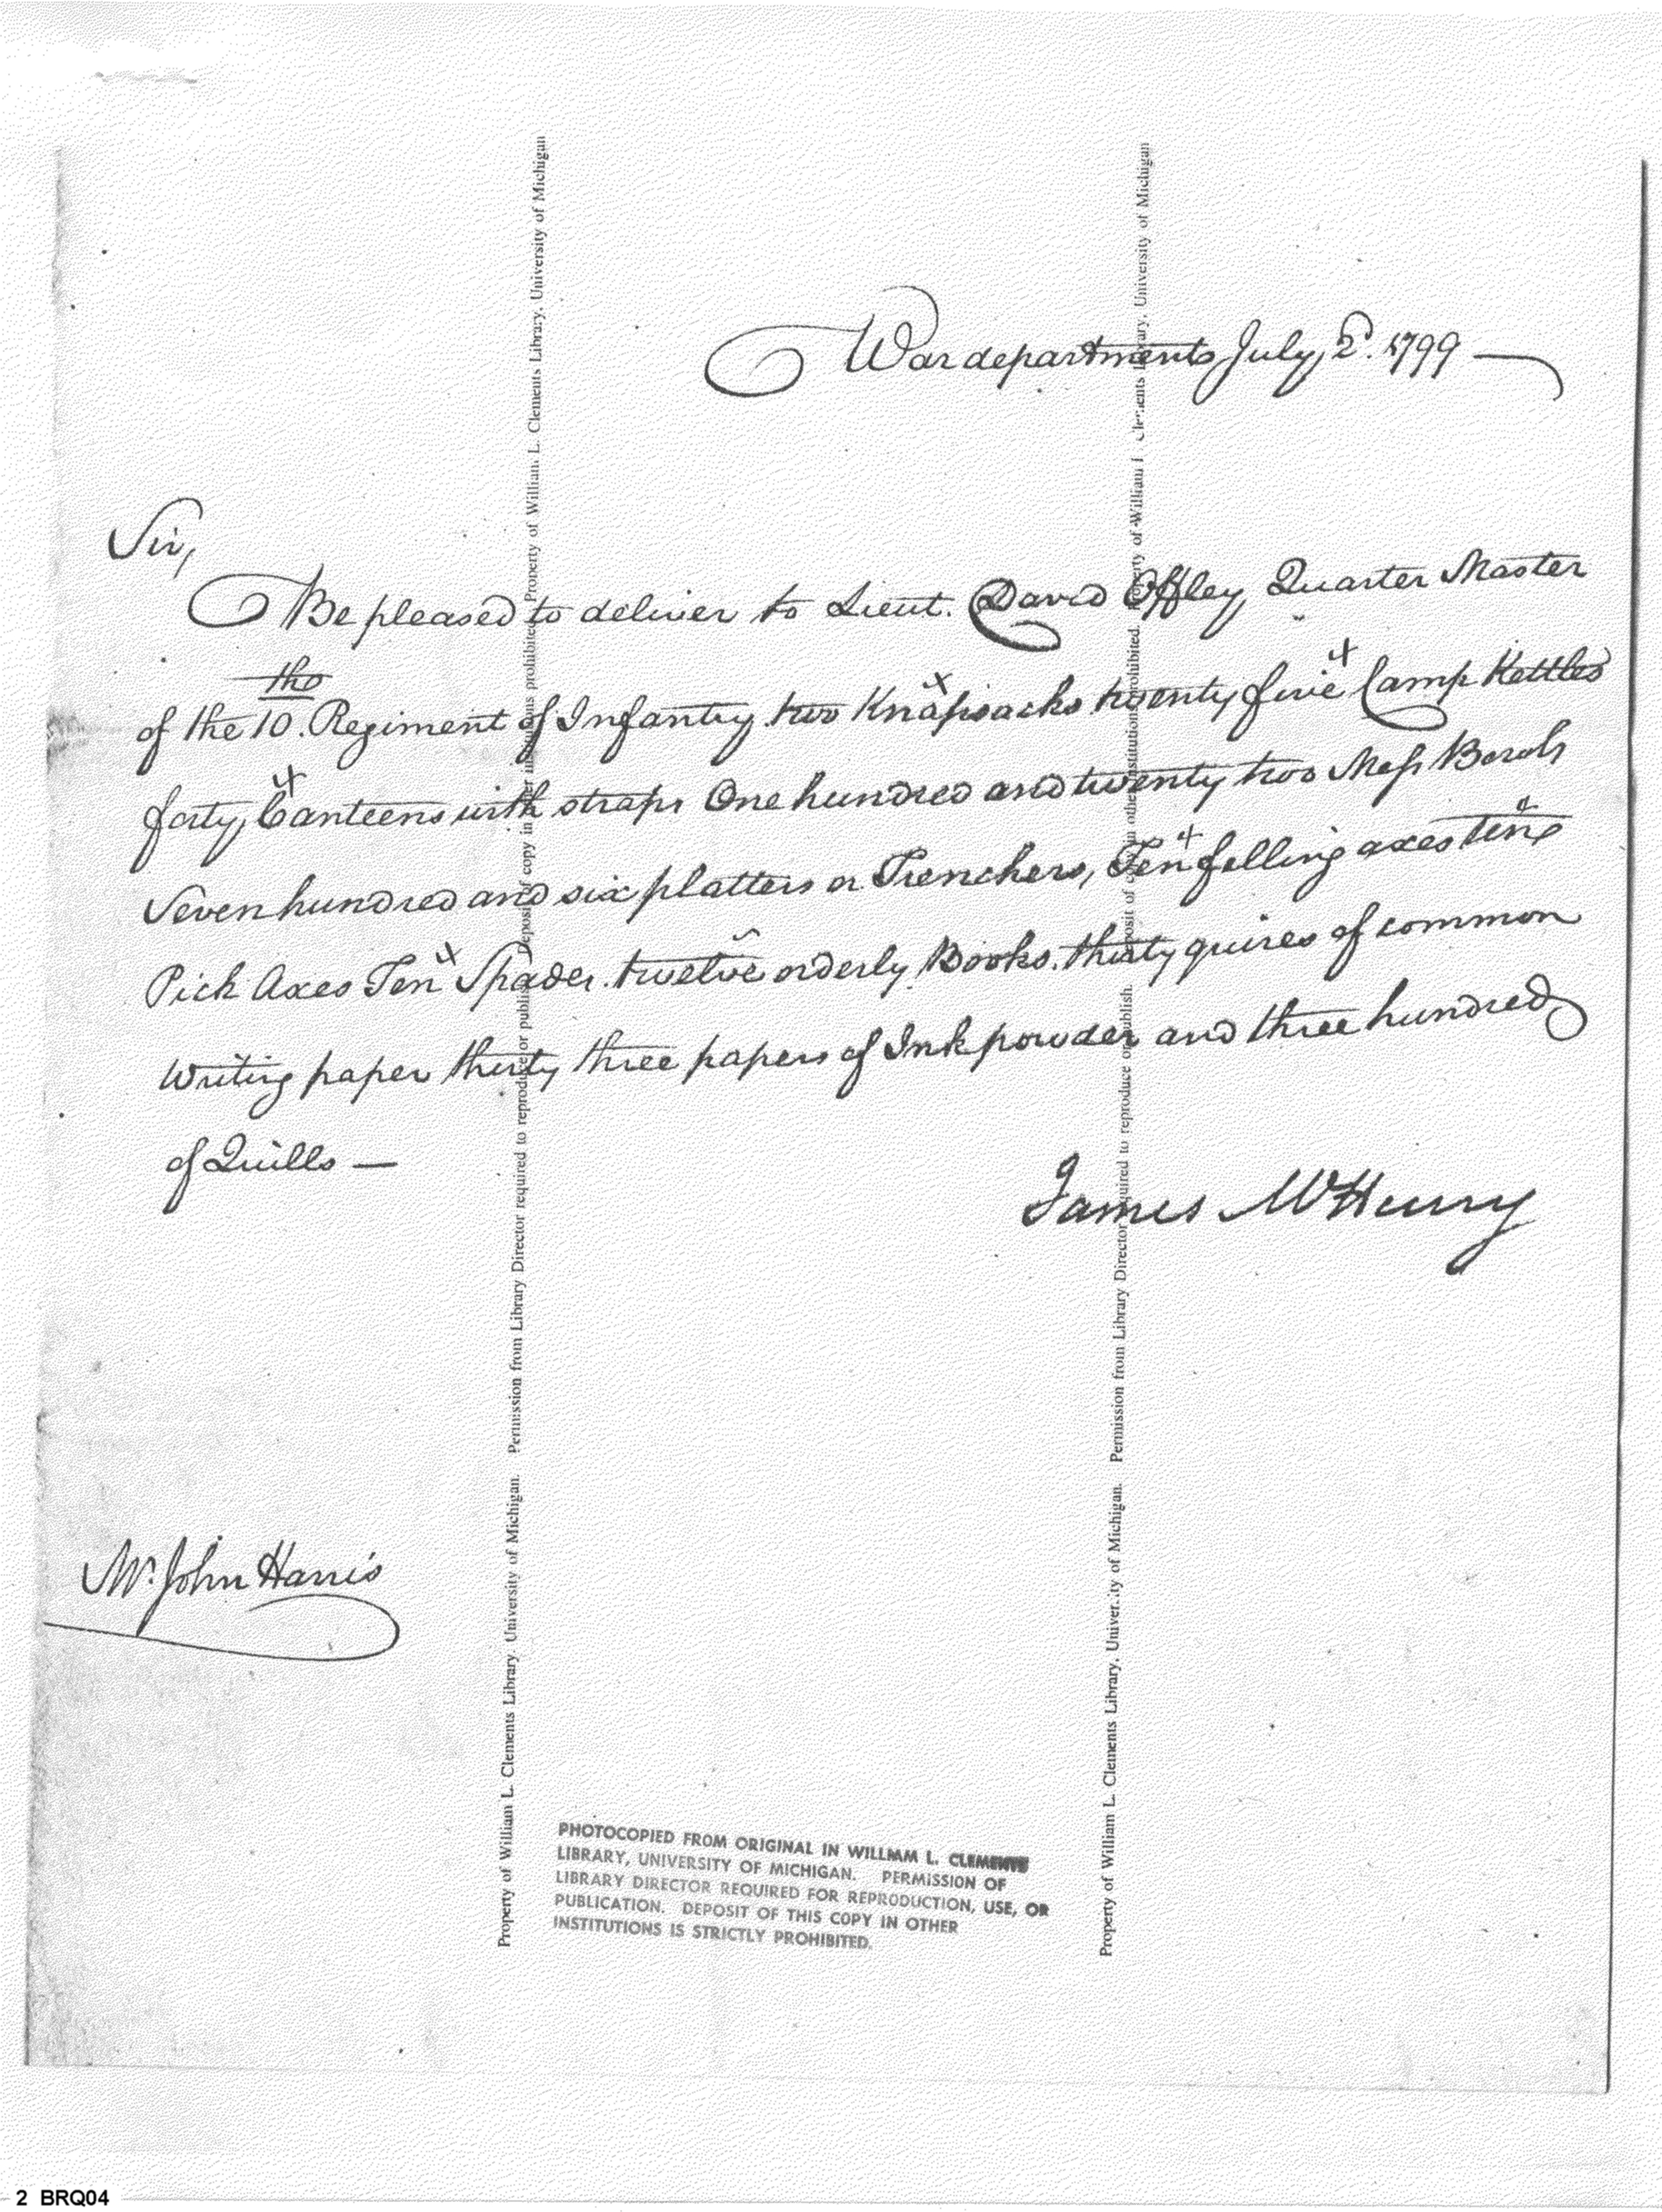 War department July, 2d. 1799 —
Sir,
Be pleased to deliver to Lieut. David Offley, Quarter Master
of the 10.th Regiment of Infantry two Knapsacks twenty five Camp Kettles
forty, Canteens with straps One hundred and twenty two Mess Bowls
Seven hundred and six platters or Trenchers, Ten felling axes ten
Pick Axes Ten Spades. twelve orderly Books. thirty quires of common
writing paper thirty three papers of Ink powder and three hundred
of Quills —
James McHenry
Mr. John Harris
Property of William L. Clements Library, University of Michigan. Permission from Library Director required to reproduce or publish. Deposit of copy in other institutions prohibited. Property of William L. Clements Library, University of Michigan
Property of William L. Clements Library, University of Michigan. Permission from Library Director required to reproduce or publish. Deposit of copy in other institutions prohibited. Property of William L. Clements Library, University of Michigan
PHOTOCOPIED FROM ORIGINAL IN WILLIAM L. CLEMENTS
LIBRARY, UNIVERSITY OF MICHIGAN. PERMISSION OF
LIBRARY DIRECTOR REQUIRED FOR REPRODUCTION, USE, OR
PUBLICATION. DEPOSIT OF THIS COPY IN OTHER
INSTITUTIONS IS STRICTLY PROHIBITED.
2 BRQ04